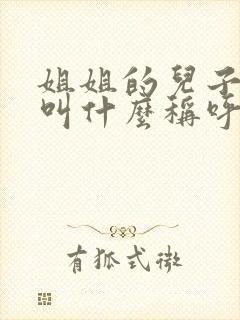 姐姐的兒子
叫什麼稱呼
有狐式微